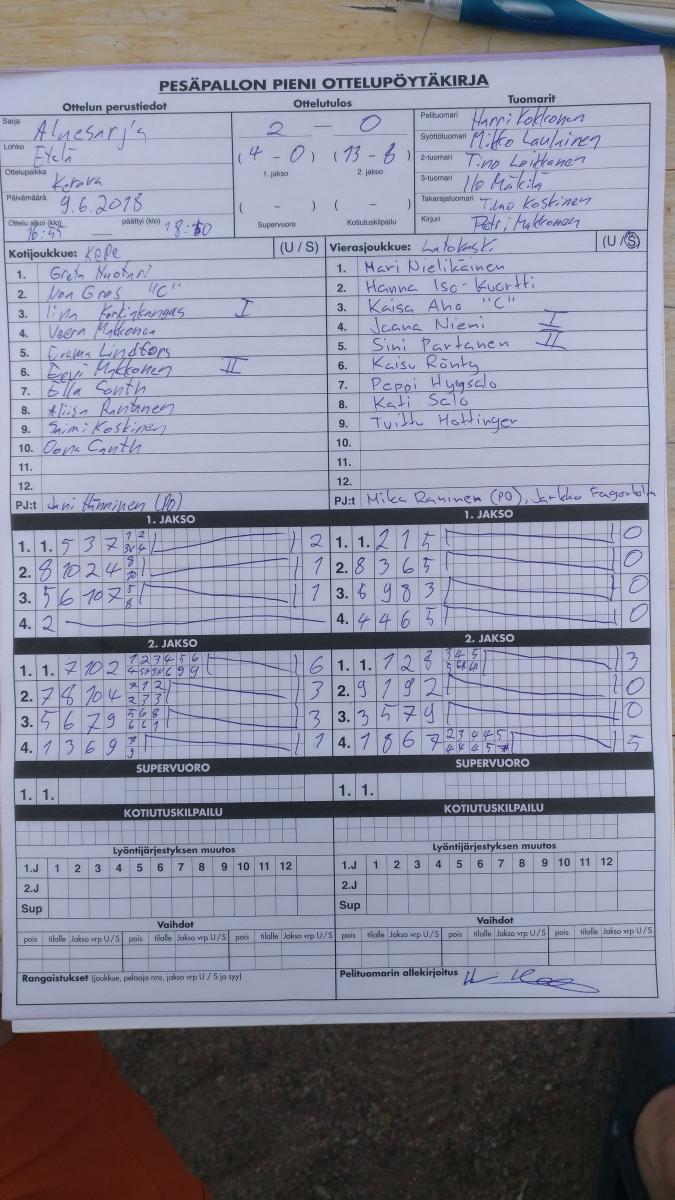 PESÄPALLON PIENI OTTELUPÖYTÄKIRJA
Ottelun perustiedot
Sarja Aluesarja
Lohko Etelä
Ottelupaikka Kerava
Päivämäärä 9.6.2018
Ottelu alkoi (klo) päättyi (klo)
Ottelutulos
2 - 0
(4 - 0) (13 - 8)
1. jakso 2. jakso
( - ) ( - )
Supervuoro Kotiutuskilpailu
Tuomarit
Pelituomari Harri Kokkonen
Syöttötuomari Mikko Laulainen
2-tuomari Timo Leikkanen
3-tuomari Ilo Mäkilä
Takarajatuomari Timo Koskinen
Kirjuri Petri Makkonen
Kotijoukkue: KePe (U / S)
1. Greta Nuotari
2. Noa Gros "C"
3. Iina Korkiakangas I
4. Veera Makkonen
5. Emma Lindfors
6. Eevi Makkonen II
7. Ella Canth
8. Aliisa Rantanen
9. Saimi Koskinen
10. Oona Canth
11.
12.
PJ:t Jani Hänninen (PO)
Vierasjoukkue: (U / S)
1. Mari Nieliköinen
2. Hanna Iso-Kuortti
3. Kaisa Aho "C"
4. Jaana Niemi I
5. Sini Partanen II
6. Kaisu Rönty
7. Peppi Hyysalo
8. Kati Salo
9. Tuittu Hottinger
10.
11.
12.
PJ:t Mika Raninen (PO), Jarkko Fagerholm
1. JAKSO
1. 1. 5 3 7 2
2. 8 10 2 4 1
3. 5 6 10 7 1
4. 2
1. JAKSO
1. 1. 2 1 5 0
2. 8 3 6 5 0
3. 6 9 8 3 0
4. 4 4 6 5 0
2. JAKSO
1. 1. 7 10 2 6
2. 7 8 10 4 3
3. 5 6 7 9 3
4. 1 3 6 9 1
2. JAKSO
1. 1. 1 2 8 3
2. 9 1 9 2 0
3. 3 5 7 9 0
4. 1 8 6 7 5
SUPERVUORO
1. 1.
SUPERVUORO
1. 1.
KOTIUTUSKILPAILU
KOTIUTUSKILPAILU
Lyöntijärjestyksen muutos
1.J 1 2 3 4 5 6 7 8 9 10 11 12
2.J
Sup
Lyöntijärjestyksen muutos
1.J 1 2 3 4 5 6 7 8 9 10 11 12
2.J
Sup
Vaihdot
pois tilalle Jakso vrp U / S pois tilalle Jakso vrp U / S pois tilalle Jakso vrp U / S
Vaihdot
pois tilalle Jakso vrp U / S pois tilalle Jakso vrp U / S pois tilalle Jakso vrp U / S
Rangaistukset (joukkue, pelaaja nro, jakso vrp U / S ja syy)
Pelituomarin allekirjoitus